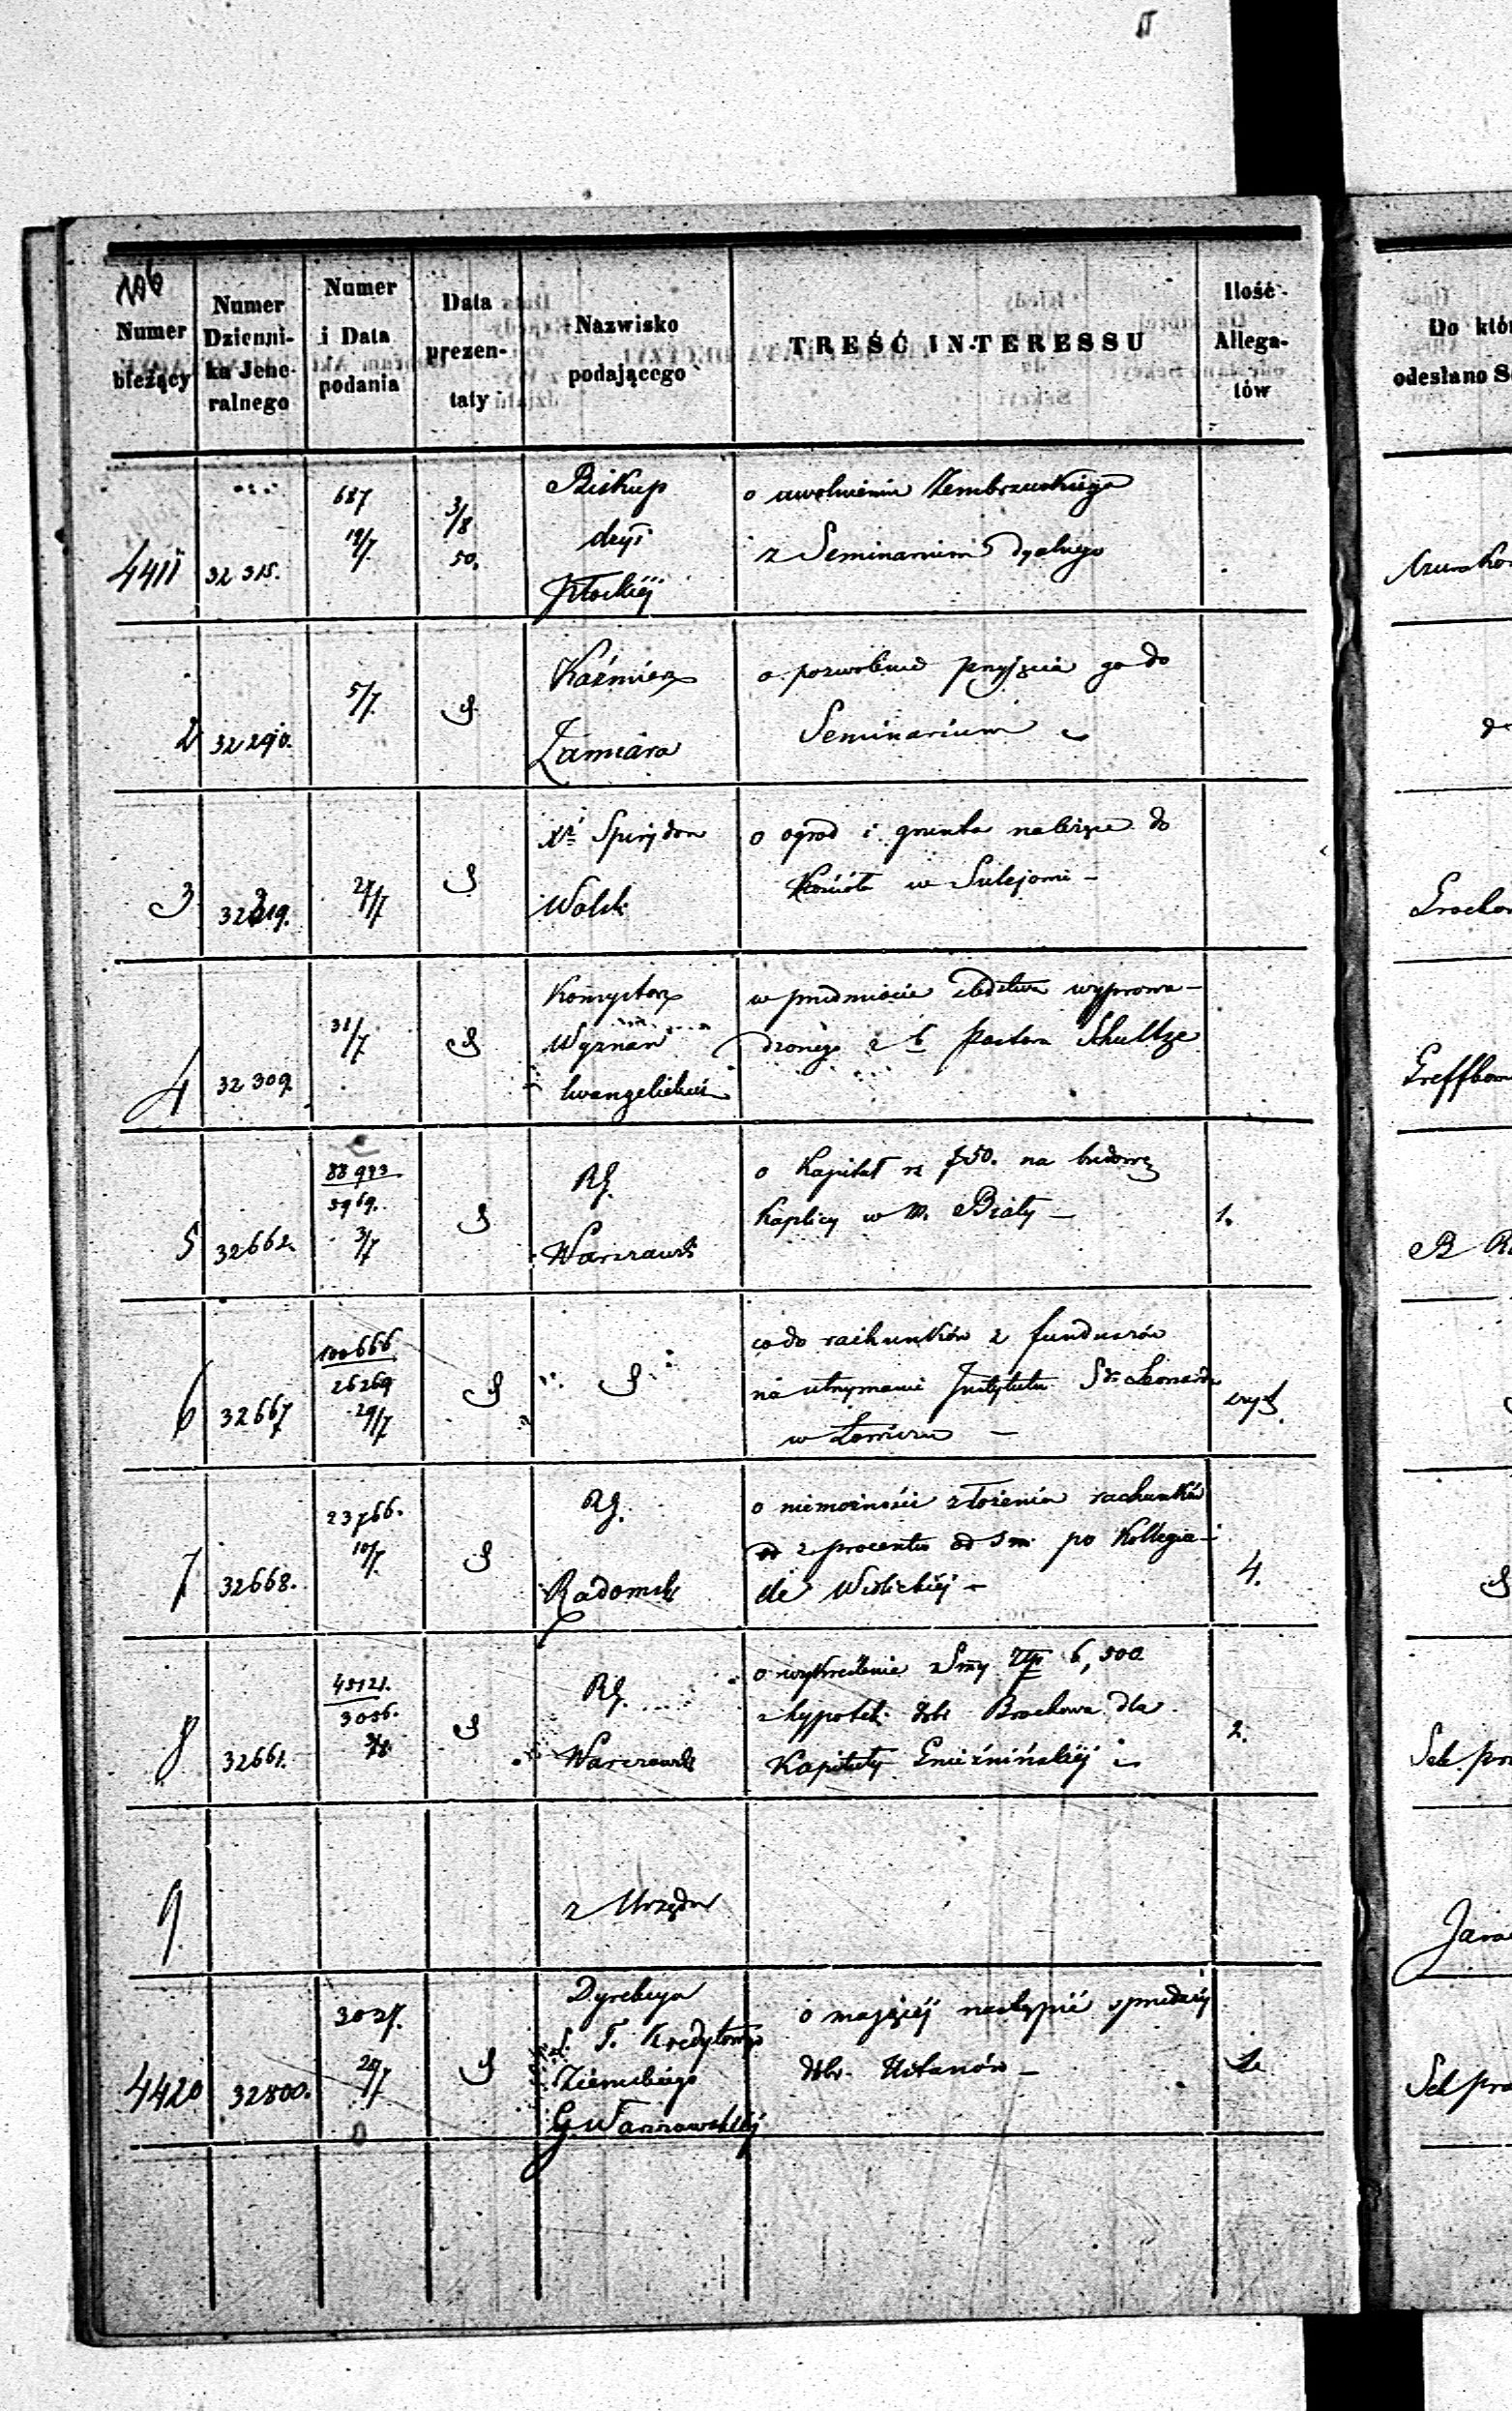 106
Numer bieżący
Numer Dzienni-ka Jene-ralnego
Numer i Data podania
Data prezen-taty
Nazwisko podającego
TREŚĆ INTERESSU
Ilość Allega-tów
Do któr
odesłano S
4411 32315. 687 19/7 3/8 50.
Biskup
dyi
Płockiéj
o uwolnieniu Zembrzuskiego
z Seminarium dyalnego
2 32290. 5/7
Kaźmierz
Zamiara
o pozwolenie przyjęcia go do
Seminarium
3 32319. 28/7
Xd Spirydon
Wolski
o ogrod i grunta należące do
Kościoła w Sulejowie –
4 32309. 31/7
Konsystorz
Wyznań
Ewangelickich
w przedmiocie śledztwa wyprowa-
dzonego z b Pastora Schultze
5 32662. 88933 5969. 3/7
RG.
Warszawski
o Kapitał rs 750. na budowę
Kaplicy w m. Biały –
1.
6 32667 100666 26269 29/7
co do rachunków z funduszów
na utrzymanie Instytutu Sgo Leonarda
w Łowiczu –
7 32668. 23766. 10/7
RG.
Radomski
o niemożności złożenia rachunków
z procentu od sm po Kollegia-
cie Wiślickiéj –
4.
8 32661. 45121. 3056. 3/8
RG.
Warszawski
o wykreślenie Smy Złp 6,500
z hypotek dóbr Brochowa dla
Kapituły Gnieźnińskiéj
2.
9
z Urzędu
4420 32800. 3027. 29/7
Dyrekcya
S. T. Kredytowego
Ziemskiego
G Warszawskiéj
o mającéj nastąpić sprzedaży
dóbr
1.
Sek pra